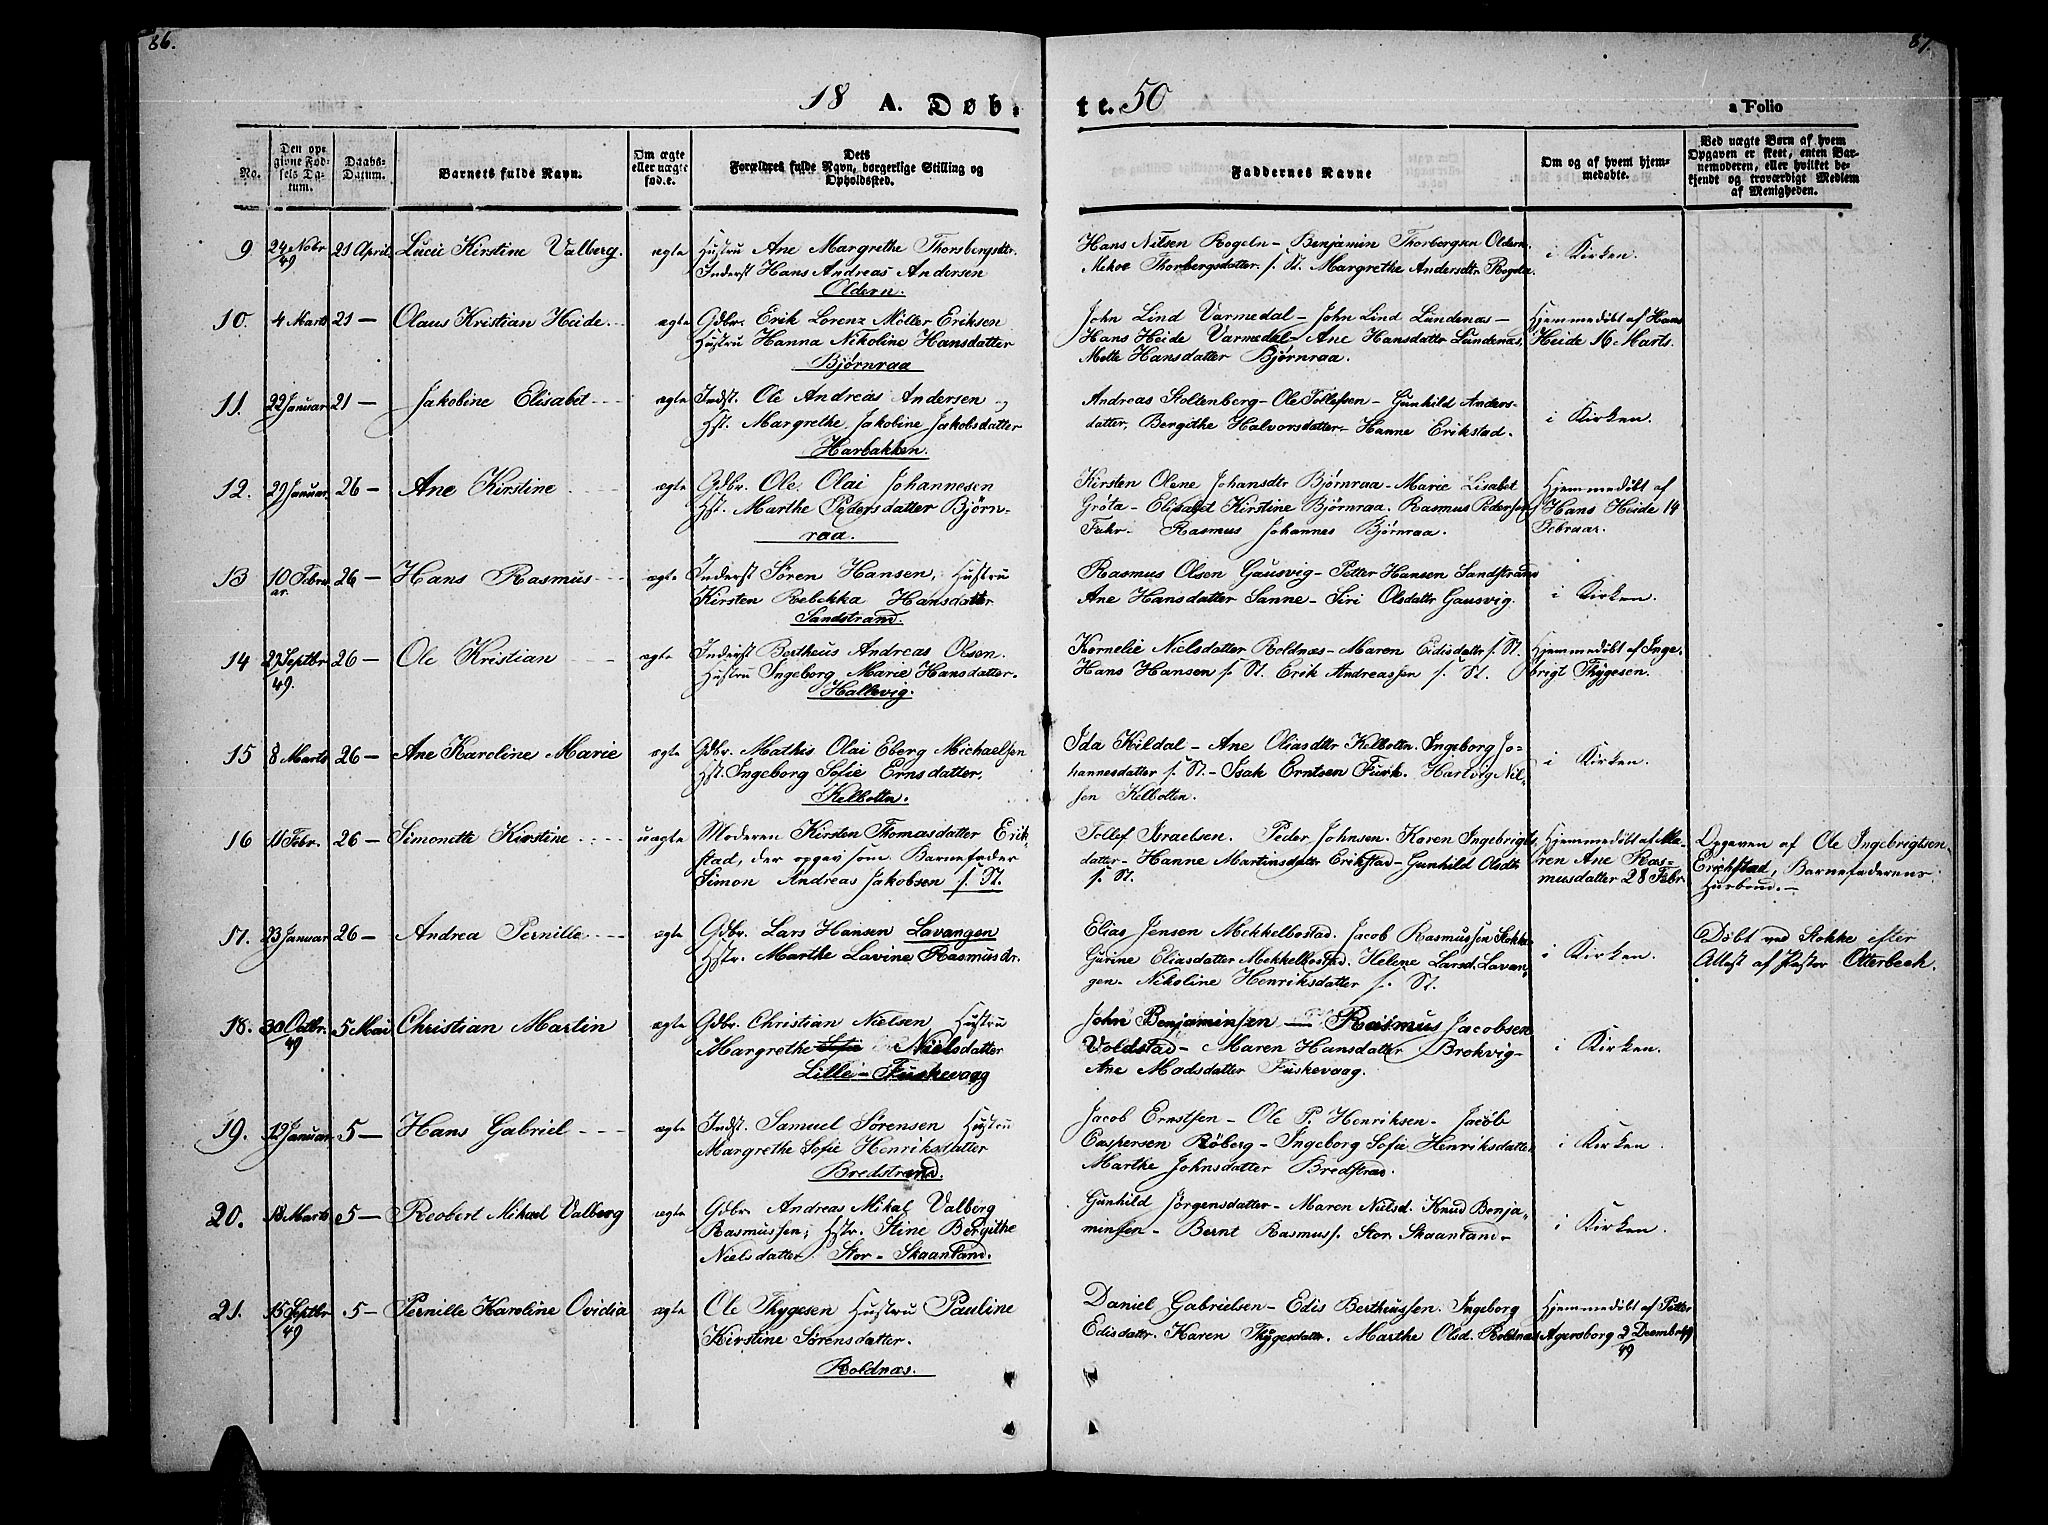 86.
87.
18 A. Døb-
te. 50
a Folio
No.
Den op-
givne Fød-
sels Da-
tum.
Daabs-
Datum.
Barnets fulde Navn.
Om ægte
eller uægte
fød.e.
Dets
Forældres fulde Navn, borgerlige Stilling og
Opholdssted.
Faddernes Navne
Om og af hvem hjem-
medøbte.
Ved uægte Børn af hvem
Opgaven er skeet, enten Bar-
nemoderen, eller hvilket be-
kjendt og troværdigt Medlem
af Menigheden.
9 24 Nobr 21 April Lucie Kirstine Valberg. ægte Hustru Ane Margrethe Thorsbergsdtr.
49
Inderst Hans Andreas Andersen
Oldern.
Hans Nilsen Rogeln - Benjamin Thorbergsen Oldern
Thorbergsdatter s. St. Margrethe Andersdtr Rogeln.
i Kirken.
10. 4 Marts 21 — Olaus Kristian Heide. ægte Gdbr. Erik Lorenz Möller Eriksen
Hustru Hanna Nikoline Hansdatter
Bjørnraa
John Lind Varmedal - John Lind Lundenæs -
Hans Heide Varmedal - Ane Hansdatter Lundenæs.
Mette Hansdatter Bjørnraa.
Hjemmedøbt af Hans
Heide 16 Marts.
11. 22 Januar 21 — Jakobine Elisabet ægte Indst. Ole Andreas Andersen og
Hst. Margrethe Jakobine Jakobsdatter
Harbakken.
Andreas Stoltenberg - Ole Tollefsen - Gunhild Anders-
datter, Bergithe Halvorsdatter - Hanne Erikstad.
i Kirken.
12. 29 Januar 26 — Ane Kirstine ægte Gdbr. Ole Olai Johannesen
Hst. Marthe Pedersdatter Bjørn-
raa.
Kirsten Olene Johansdtr Bjørnraa - Marie Lisabet
Grøta - Elisabet Kirstine Bjørnraa. Rasmus Pedersen
Fuhr. Rasmus Johannes Bjørnraa.
Hjemmedøbt af
Hans Heide 14
Februar.
13 10 Febru 26 — Hans Rasmus ægte Inderst Sören Hansen, Hustru
ar.
Kirsten Rebekka Hansdatter
Sandstrand.
Rasmus Olsen Gausvig - Petter Hansen Sandstrand
Ane Hansdatter Sanne - Siri Olsdatter Gausvig.
i Kirken.
14 27 Septbr 26 — Ole Kristian ægte Inderst Bertheus Andreas Olsen.
49.
Hustru Ingeborg Marie Hansdatter.
Hallevig.
Kornelie Nielsdatter Roldnæs - Maren Edisdatter s. St.
Hans Hansen s. St. Erik Andreassen s. St.
Hjemmedøbt af Inge-
brigt Thygesen.
15 8 Marts 26 — Ane Karoline Marie ægte Gdbr. Mathis Olai Eberg Michaelsen
Hst. Ingeborg Sofie Ernsdatter.
Kelbotn.
Ida Kildal - Ane Oliasdtr Kelbotn. Ingeborg Jo-
hannesdatter s. St. - Isak Erntsen Furk. Hartvig Nil-
sen Kelbotten.
i Kirken.
16 11 Febr. 26 — Simonette Kirstine uægte Moderen Kirsten Thomasdatter Erik-
stad, der opgav som Barnefader
Simon Andreas Jakobsen s. St.
Tollef Israelsen. Peder Johnsen. Karen Ingebrigts
datter - Hanne Martinsdatter Erikstad - Gunhild Olsdtr
s. St.
Hjemmedøbt af Ma-
ren Ane Ras-
musdatter 28 Febr.
Opgaven af Ole Ingebrigtsen
Erichstad, Barnefaderens
Husbond. —
17. 23 Januar 26 — Andrea Pernille ægte Gdbr. Lars Hansen Lavangen
Hstr. Marthe Lavine Rasmusdr.
Elias Jensen Mekkelbostad. Jacob Rasmussen Stokke
Gurine Eliasdatter Mekkelbostad. Helene Larsd. Lavan-
gen. Nikoline Henriksdatter s. St.
i Kirken.
Døbt ved Stokke efter
Attest af Pastor Otterbech.
18. 30 Octbr. 5 Mai Christian Martin ægte Gdbr. Christian Nielsen Hustru
49
Margrethe Sofie Nielsdatter
Lille - Fuskevaag
John Benjaminsen — Rasmus Jacobsen
Voldstad - Maren Hansdatter Brokvig -
Ane Madsdatter Fuskevaag.
i Kirken.
19. 12 Januar 5 — Hans Gabriel ægte Indst. Samuel Sørensen Hustru
Margrethe Sofie Henriksdatter
Bredstrand.
Jacob Ernstsen - Ole P. Henriksen - Jacob
Caspersen Røberg - Ingeborg Sofie Henriksdatter
Marthe Johnsdatter Bredstran.
i Kirken.
20. 18 Marts 5 — Reobert Mikael Valberg ægte Gdbr. Andreas Mikal Valberg
Rasmussen; Hstr. Stine Bergithe
Nielsdatter. Stor - Skaanland.
Gunhild Jørgensdatter - Maren Nielsd. Knud Benja-
minsen - Bernt Rasmuss. Stor Skaanland -
i Kirken.
21. 15 Septbr 5 — Pernille Karoline Ovidia ægte Ole Thygesen Hustru Pauline
49
Kirstine Sørensdatter.
Roldnæs.
Daniel Gabrielsen - Edis Bertheussen. Ingeborg
Edisdatter. Karen Thygesdatter. Marthe Olsd. Roldnæs
Hjemmedøbt af Petter
Agersborg 2 Decembr 49
49